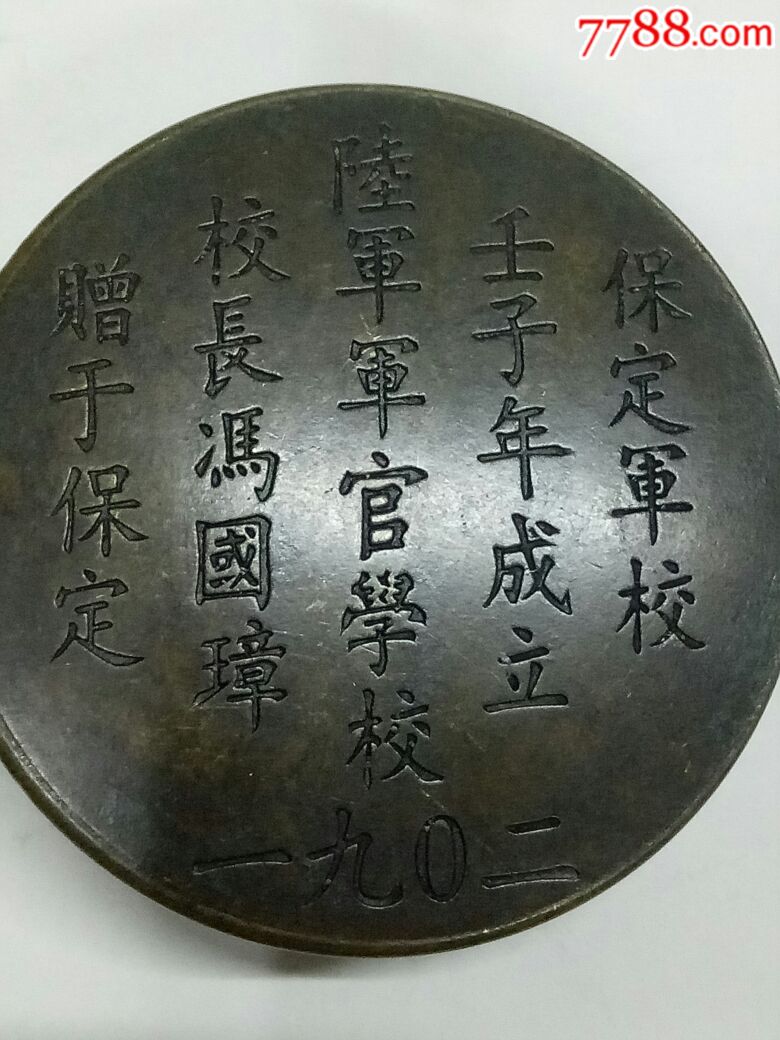 7788.com
保定軍校
壬子年成立
陸軍軍官學校
校長馮國璋
贈于保定
一九〇二